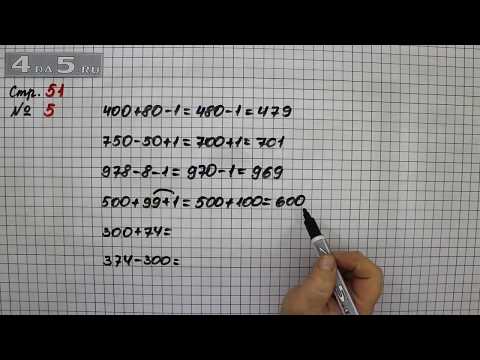 4DA5.RU
Стр. 51
№ 5
400+80-1=480-1=479
750-50+1=700+1=701
978-8-1=970-1=969
500+99+1=500+100=600
300+74=
374-300=